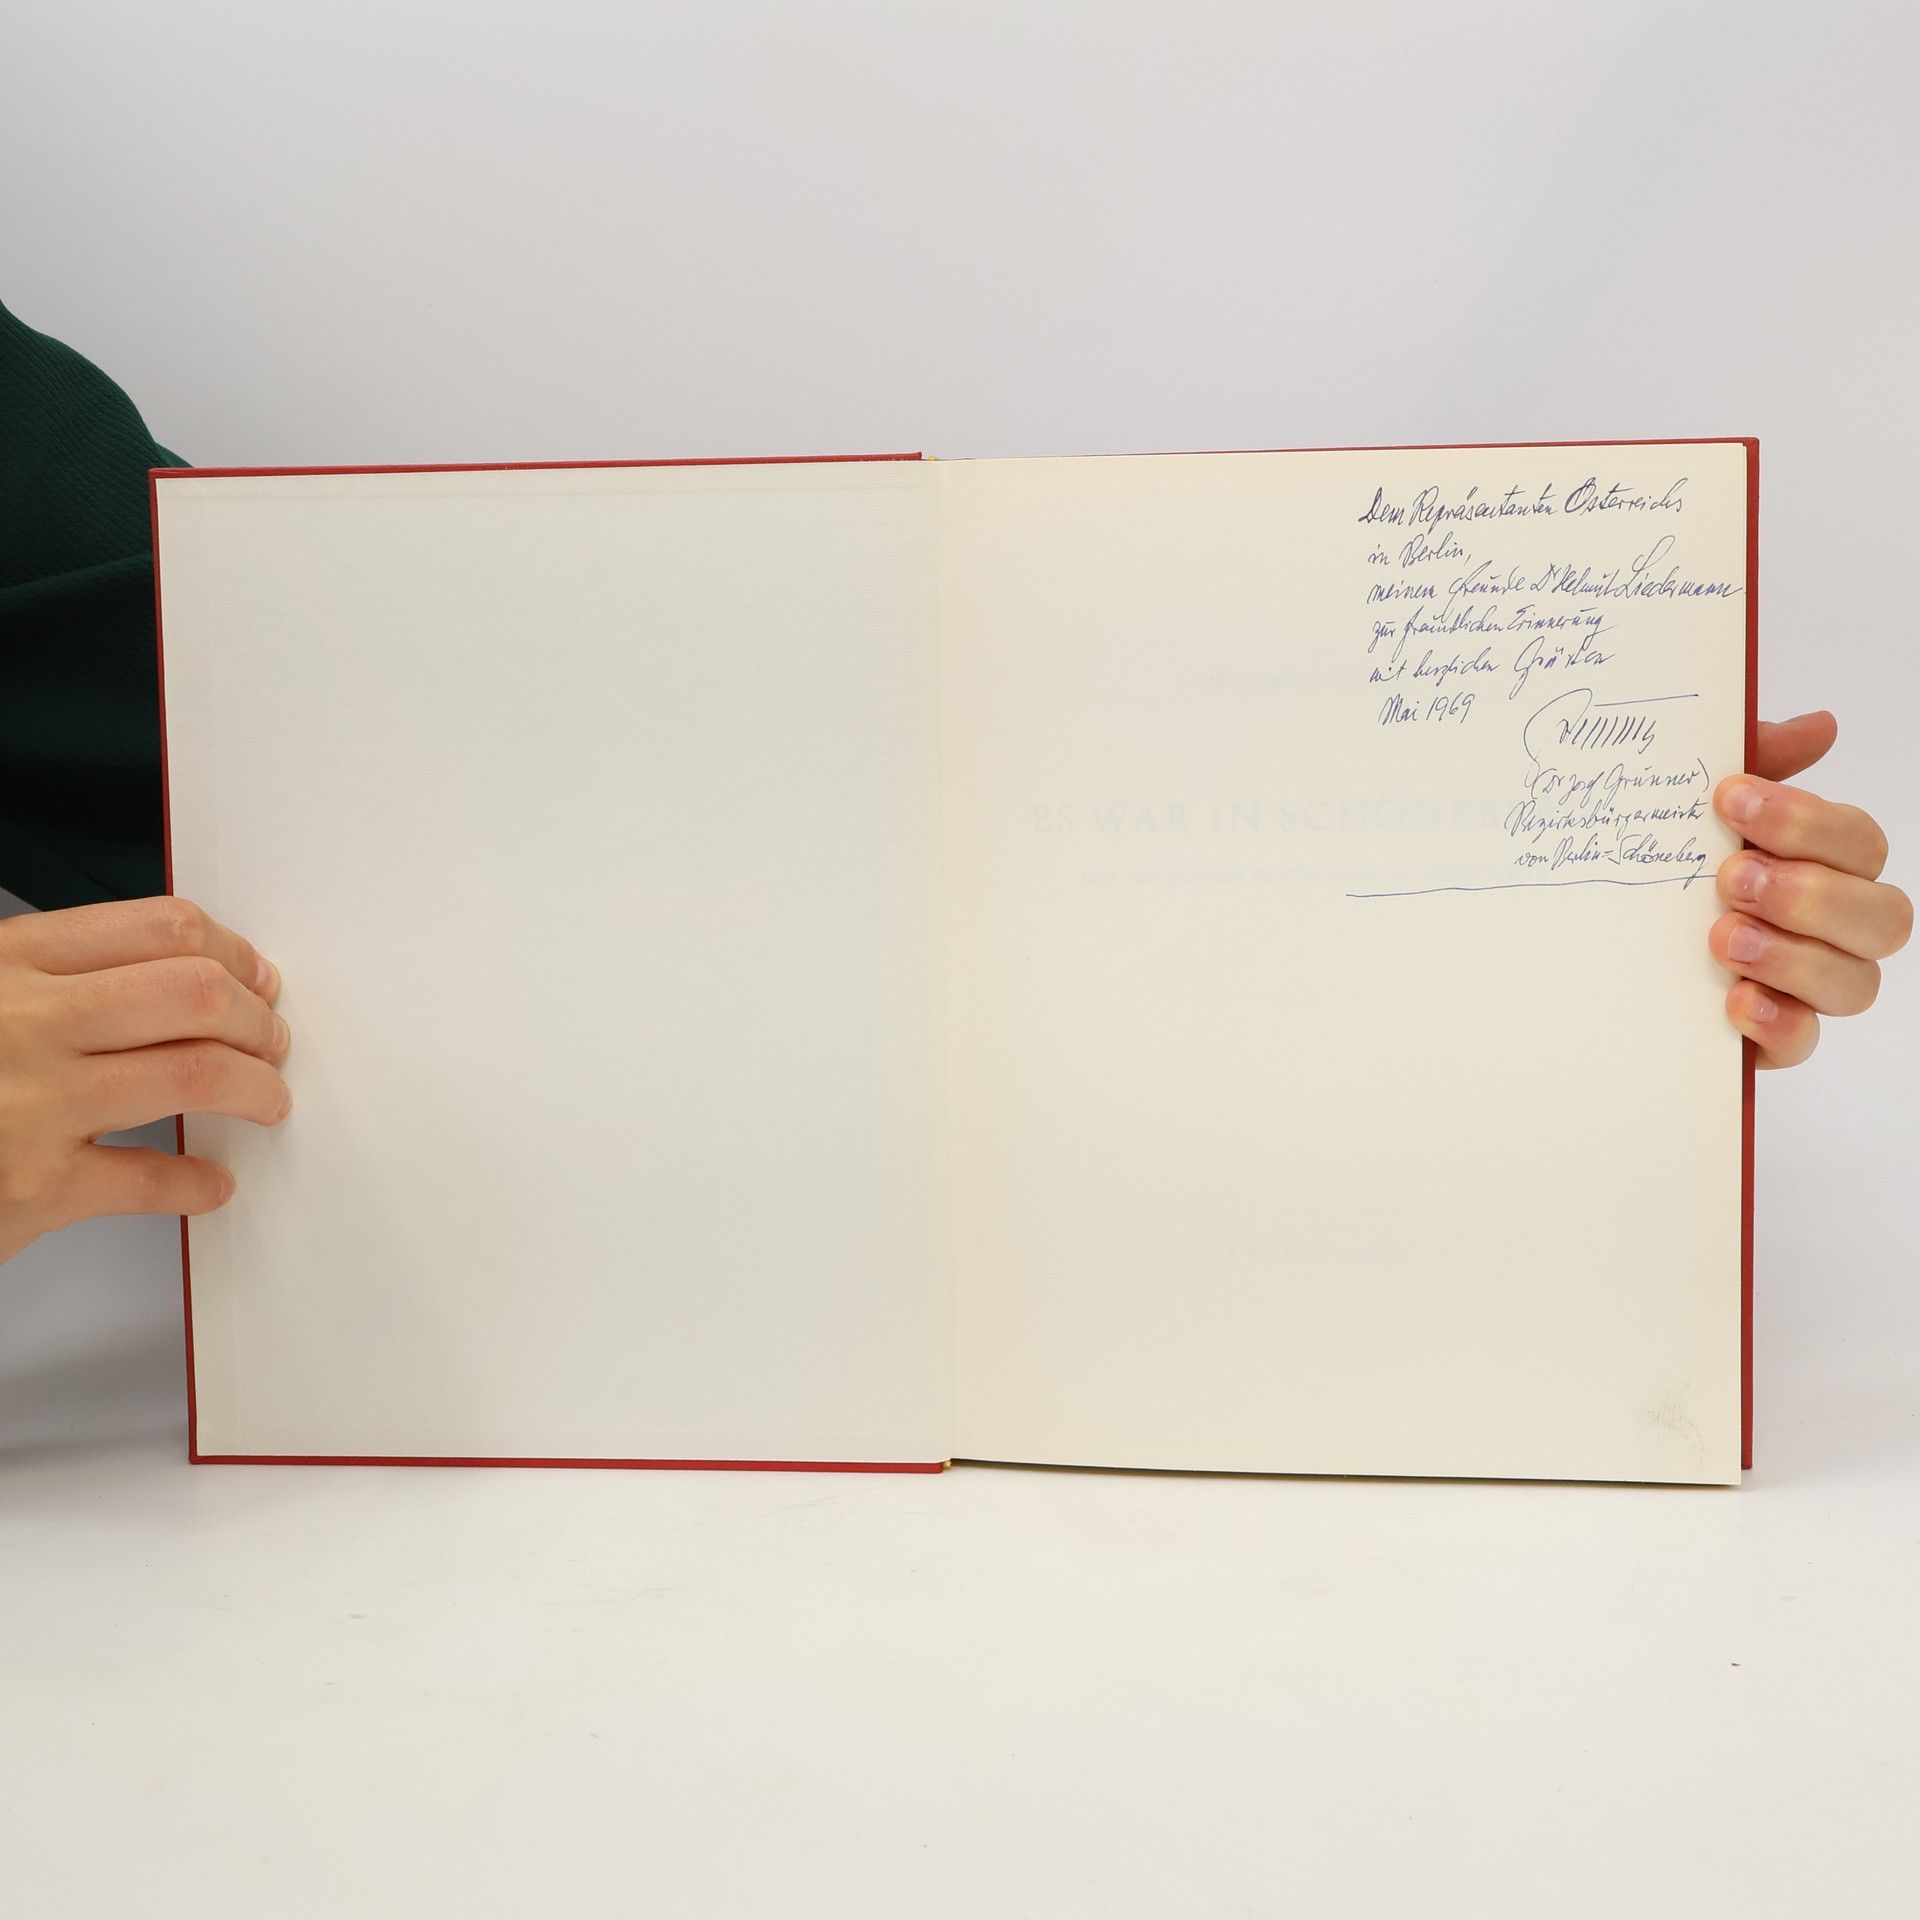 Dem Repräsentanten Österreichs
in Berlin,
meinem Freunde Dr Helmut Liedermann
zur freundlichen Erinnerung
mit herzlichen Grüßen
Mai 1969
(Dr Josef Grunner)
Bezirksbürgermeister
von Berlin=Schöneberg
ES WAR IN SCHÖNEBERG